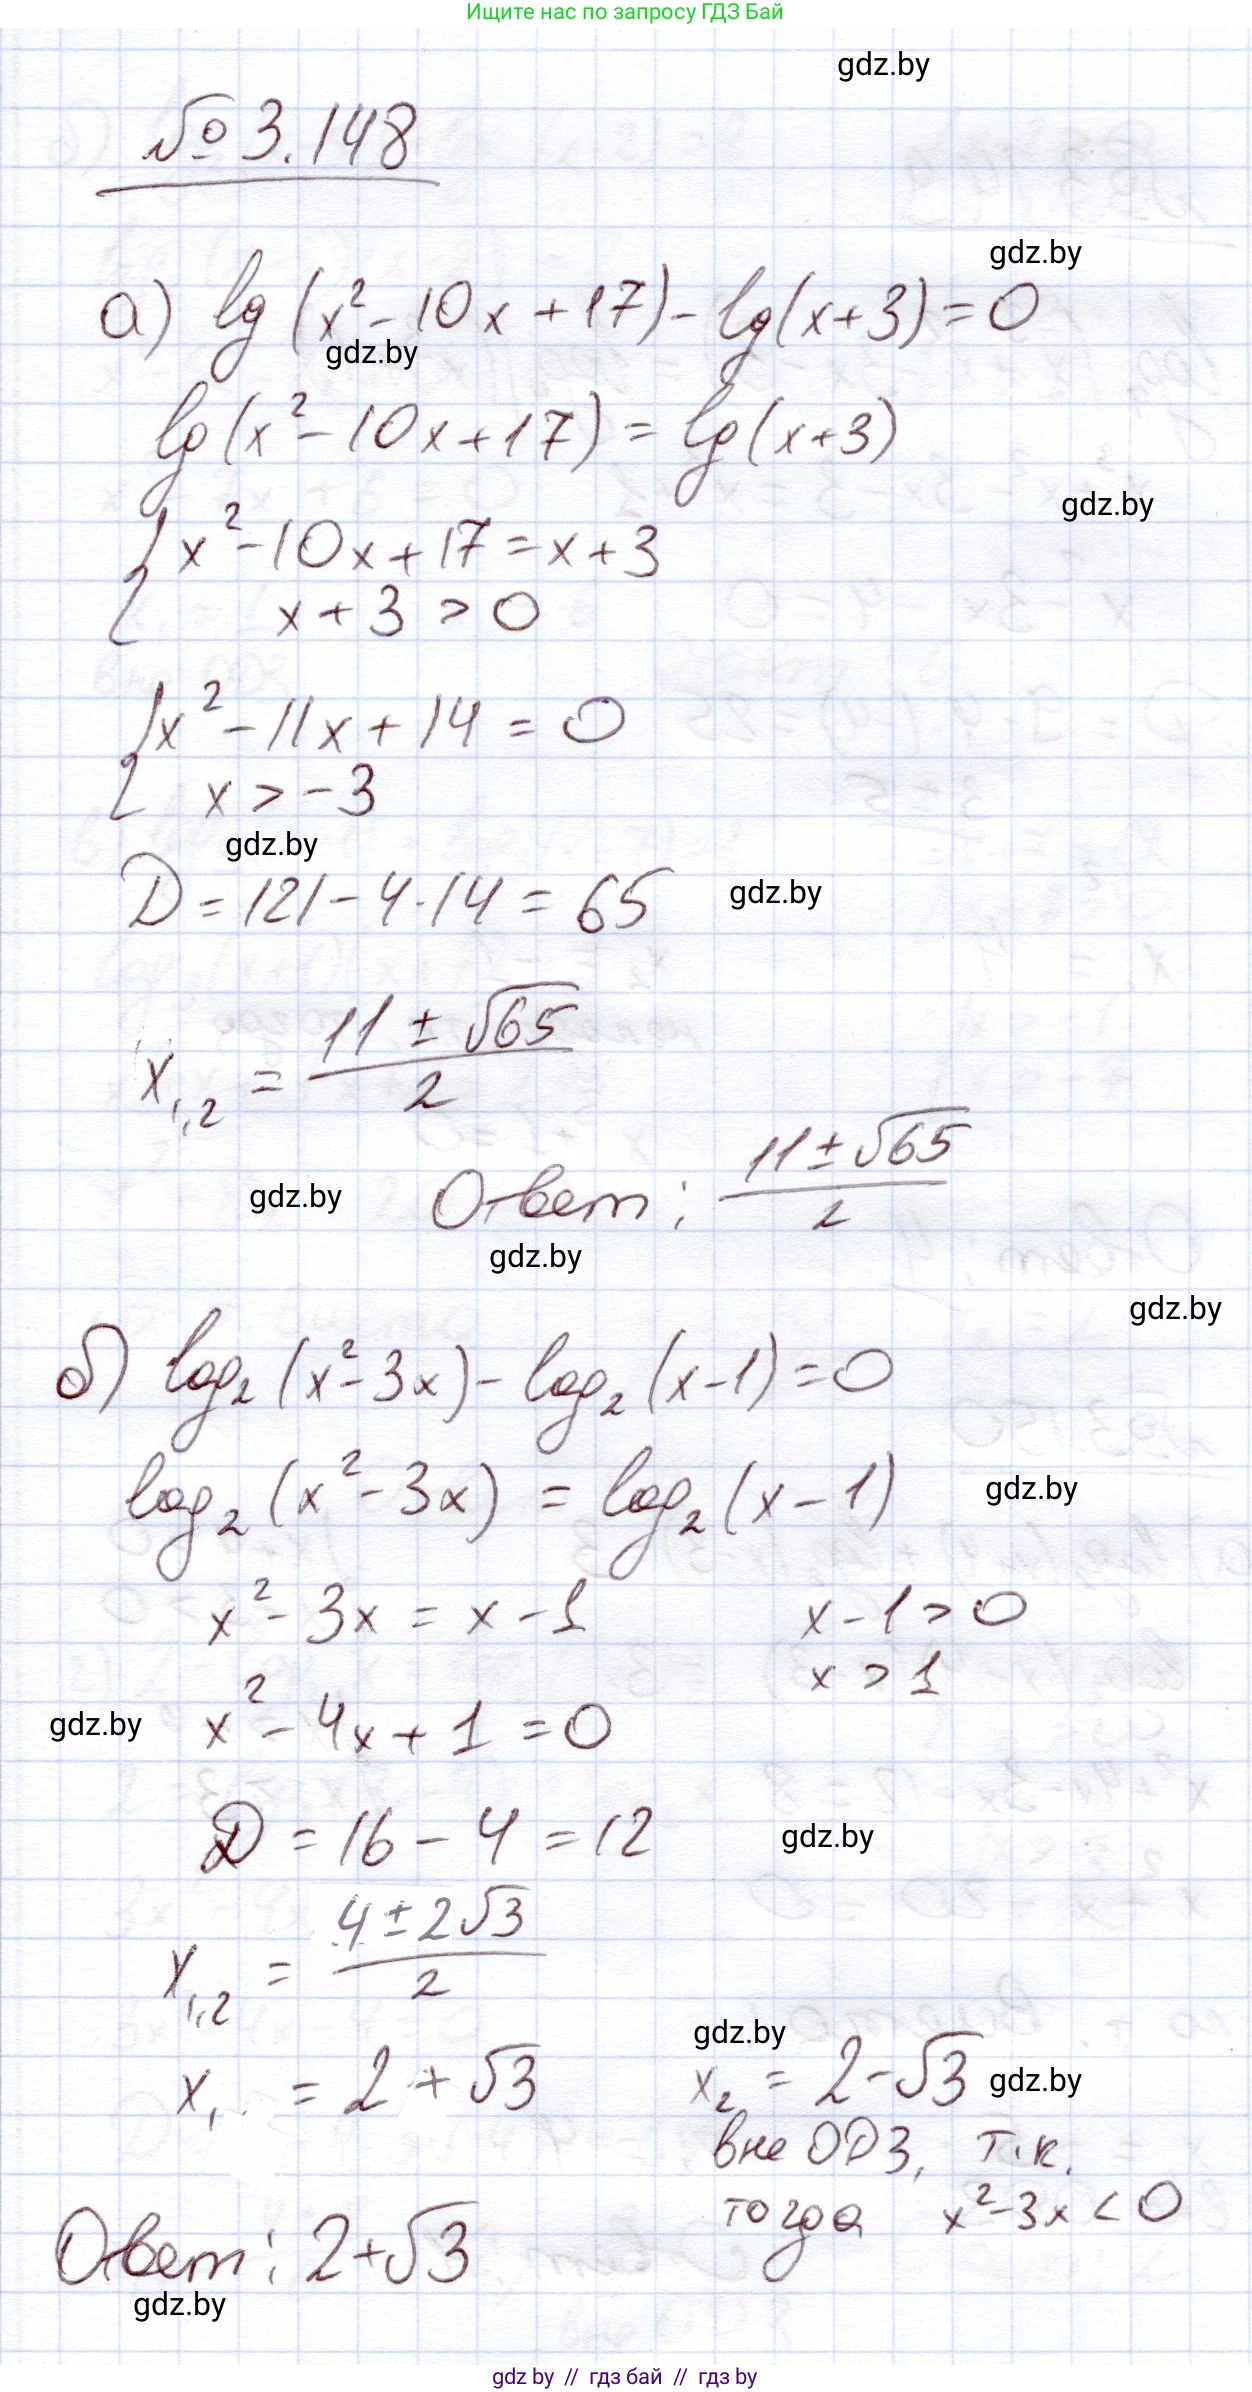 Ищите нас по запросу ГДЗ Бай
gdz.by
№ 3.148
gdz.by
а) lg(x² - 10x + 17) - lg(x+3) = 0
gdz.by
lg(x² - 10x + 17) = lg(x+3)
gdz.by
{ x² - 10x + 17 = x + 3
x + 3 > 0
{ x² - 11x + 14 = 0
x > -3
gdz.by
D = 121 - 4·14 = 65
gdz.by
x₁,₂ = (11 ± √65)/2
gdz.by
Ответ: (11 ± √65)/2
gdz.by
gdz.by
б) log₂(x² - 3x) - log₂(x-1) = 0
log₂(x² - 3x) = log₂(x - 1)
gdz.by
x² - 3x = x - 1 x - 1 > 0
x > 1
gdz.by
x² - 4x + 1 = 0
D = 16 - 4 = 12
gdz.by
x₁,₂ = (4 ± 2√3)/2
gdz.by
x₁ = 2 + √3 x₂ = 2 - √3
gdz.by
вне ОДЗ, т.к.
тогда x² - 3x < 0
Ответ: 2+√3
gdz.by
gdz by // гдз бай // гдз by